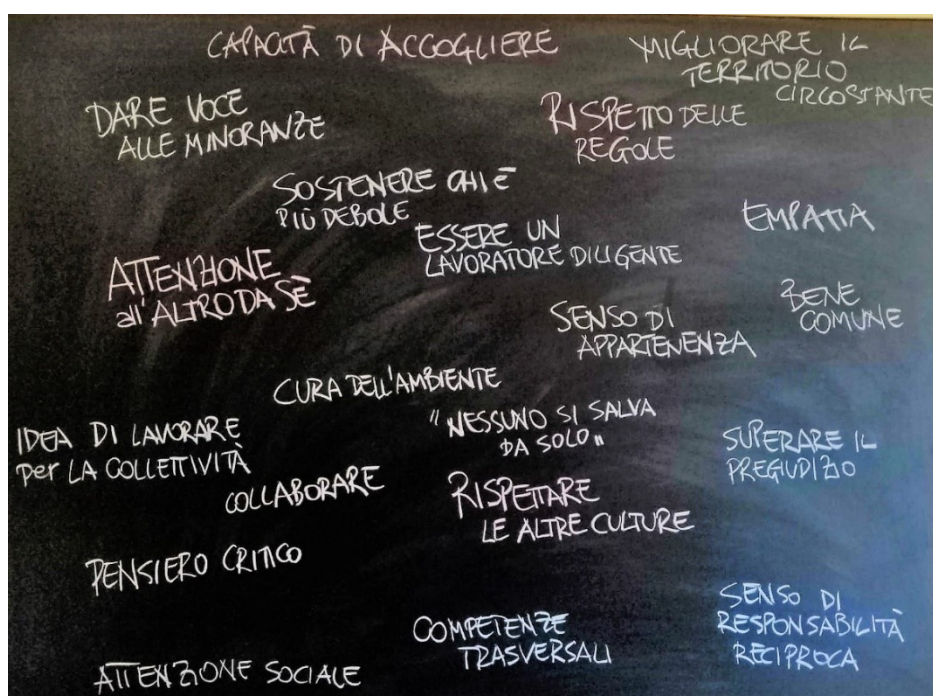 CAPACITÀ DI ACCOGLIERE
MIGLIORARE IL
TERRITORIO
CIRCOSTANTE
DARE VOCE
ALLE MINORANZE
RISPETTO DELLE
REGOLE
SOSTENERE CHI È
PIÙ DEBOLE
ESSERE UN
LAVORATORE DILIGENTE
EMPATIA
ATTENZIONE
all'ALTRO DA SÈ
SENSO DI
APPARTENENZA
BENE
COMUNE
CURA DELL'AMBIENTE
"NESSUNO SI SALVA
DA SOLO"
IDEA DI LAVORARE
per LA COLLETTIVITÀ
SUPERARE IL
PREGIUDIZIO
COLLABORARE
RISPETTARE
LE ALTRE CULTURE
PENSIERO CRITICO
COMPETENZE
TRASVERSALI
SENSO DI
RESPONSABILITÀ
RECIPROCA
ATTENZIONE SOCIALE